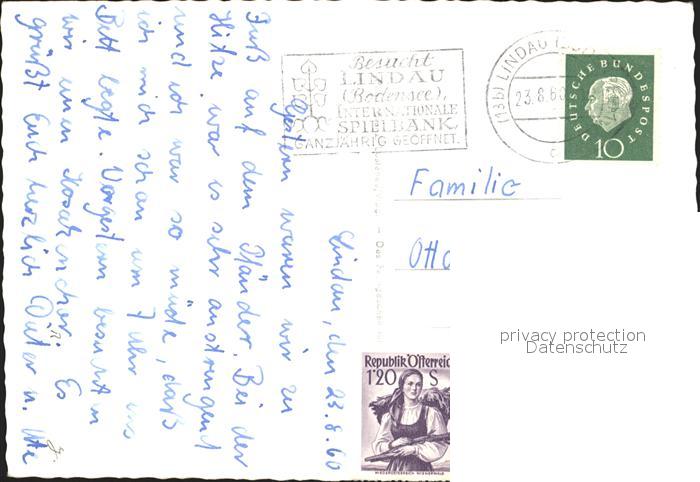 Lindau, den 23.8.60
Gestern waren wir zu
Fuß auf dem Pfänder. Bei der
Hitze war es sehr anstrengend
und ich war so müde, daß
ich mich schon um 7 Uhr ins
Bett legte. Vorgestern besuchten
wir einen Kosakenchor. Es
grüßt Euch herzlich Dieter u. Ute
Besucht
LINDAU
(Bodensee),
INTERNATIONALE
SPIELBANK,
GANZJÄHRIG GEÖFFNET.
(13b) LINDAU
23.8.60
c
DEUTSCHE BUNDESPOST
10
Familie
Otto
privacy protection
Datenschutz
Republik Österreic
1'20 S
NIEDERÖSTERREICH WIENERWALD